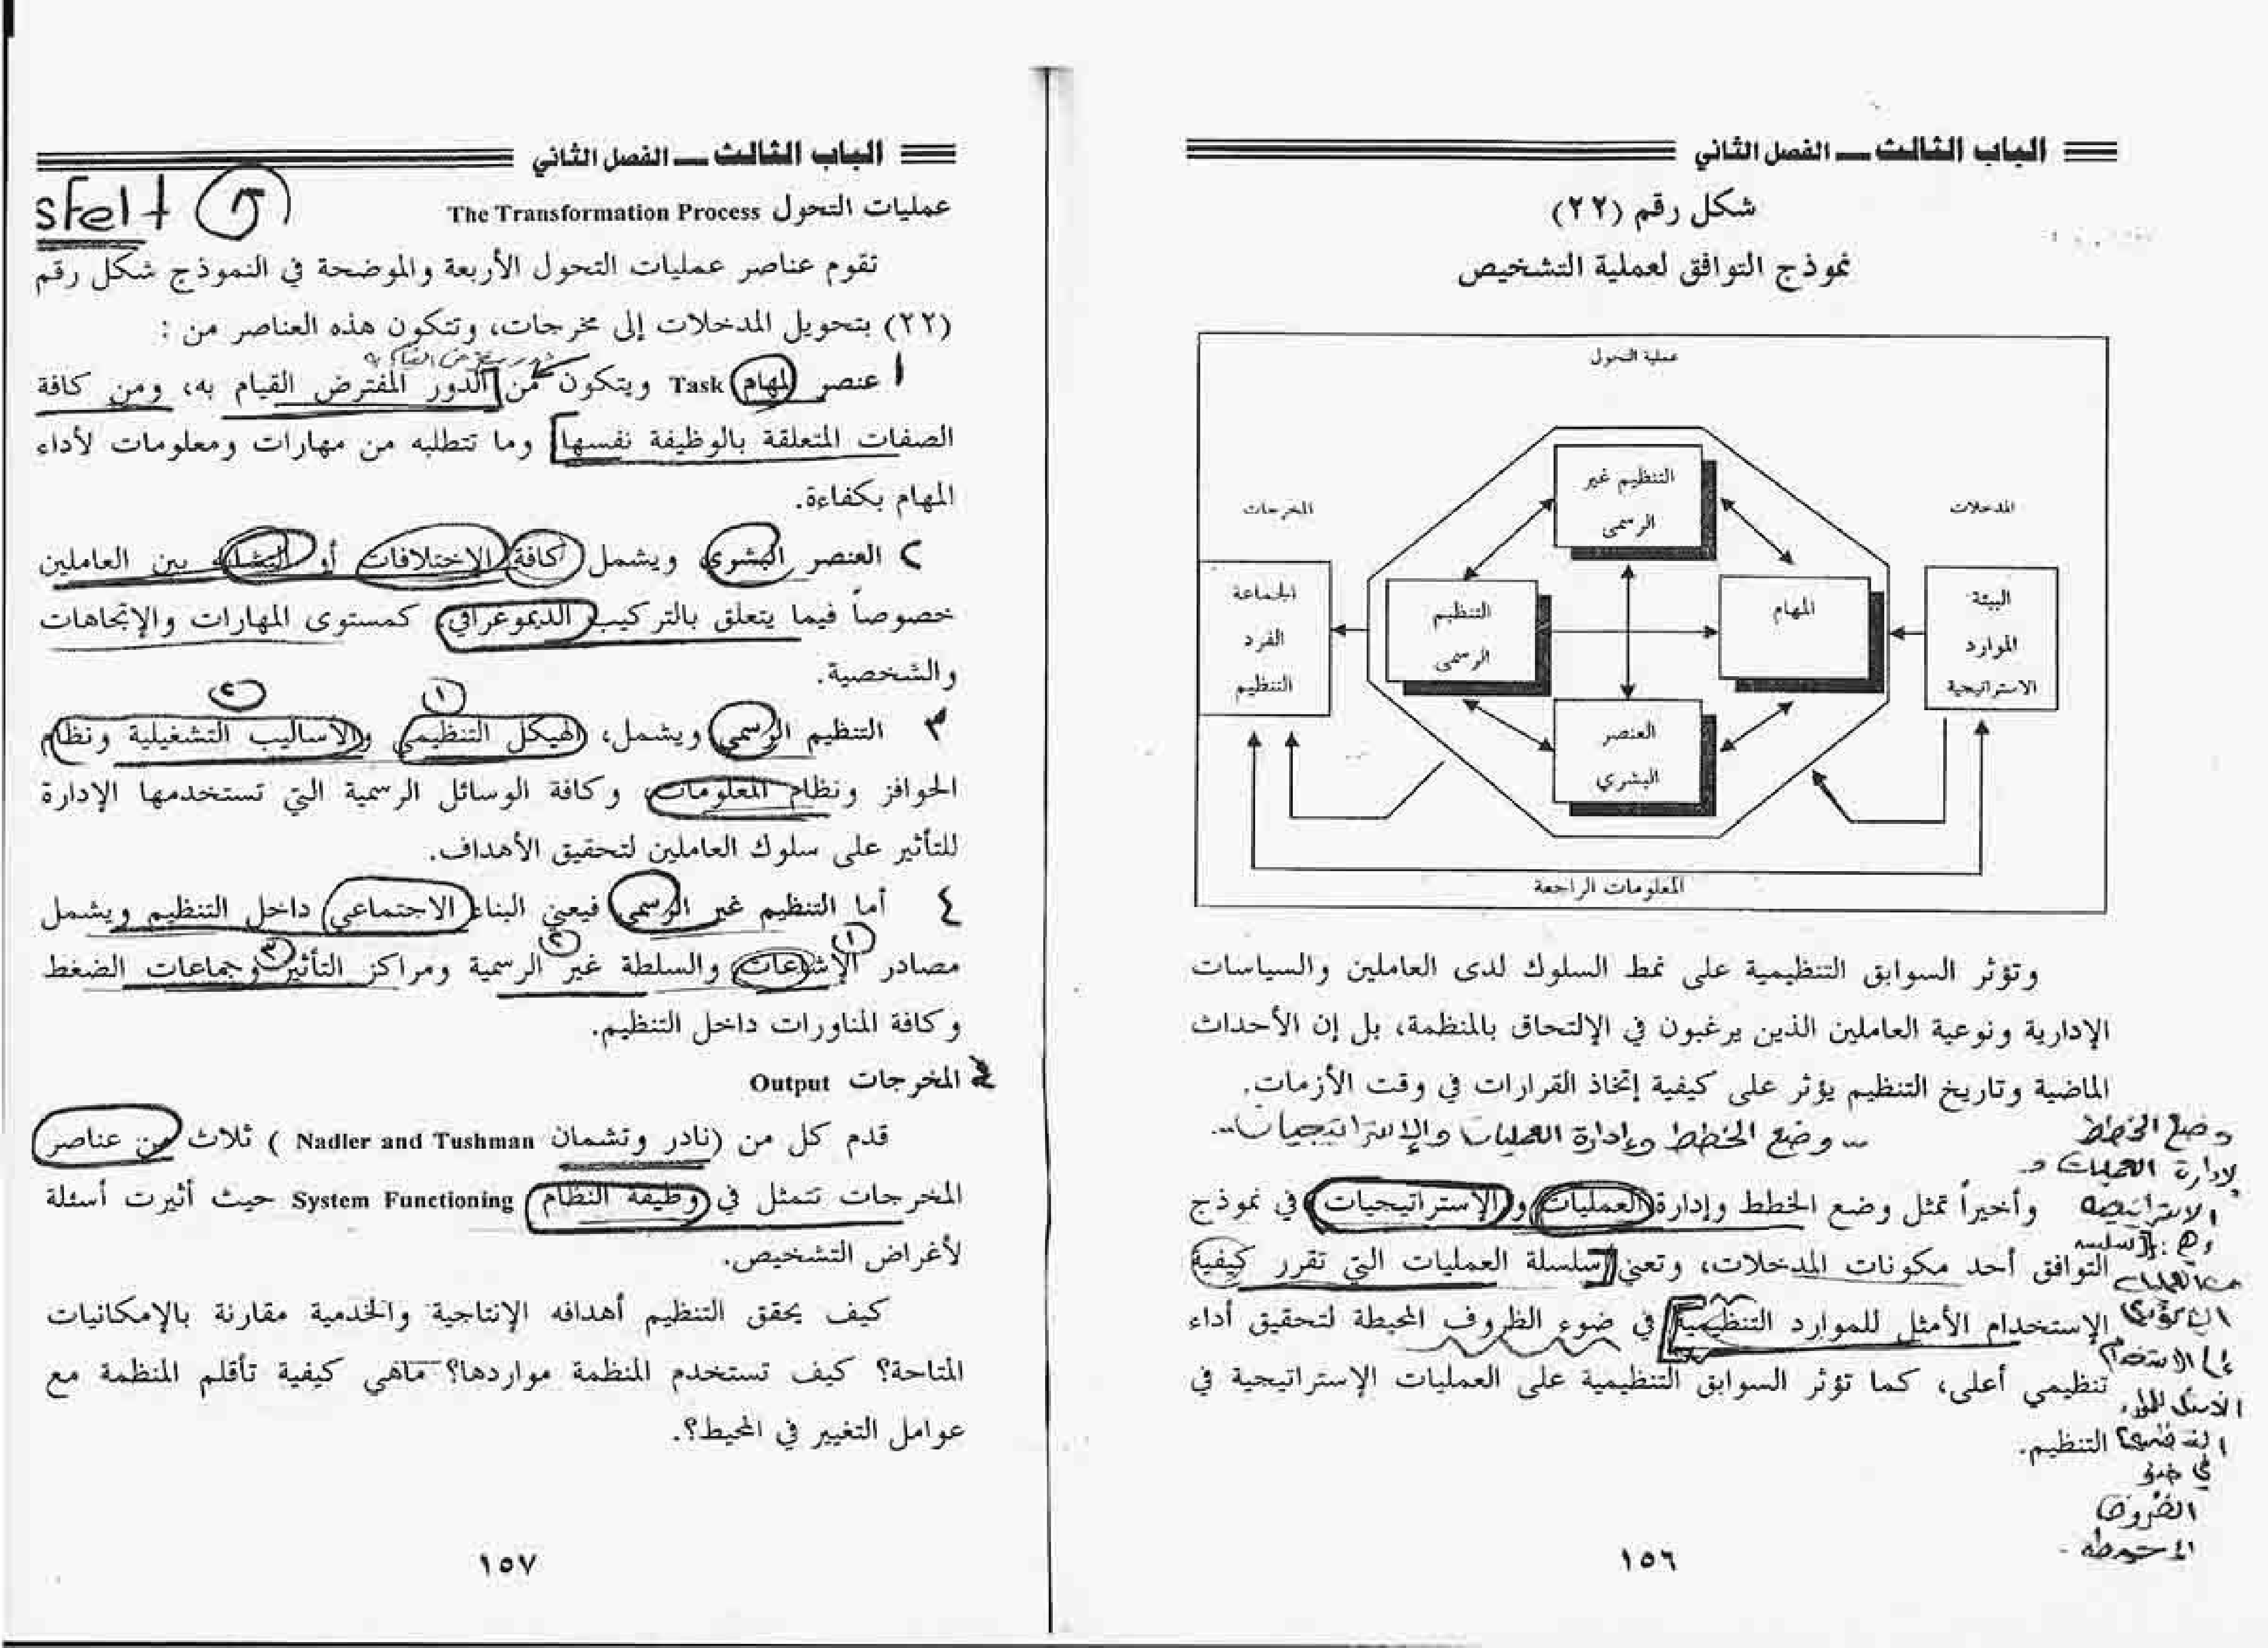 الباب الثالث — الفصل الثاني
شكل رقم (٢٢)
نموذج التوافق لعملية التشخيص
عملية التحول
التنظيم غير
الرسمي
المدخلات
المخرجات
البيئة
الموارد
الاستراتيجية
المهام
التنظيم
الرسمي
الجماعة
الفرد
التنظيم
العنصر
البشري
المعلومات الراجعة
وتؤثر السوابق التنظيمية على نمط السلوك لدى العاملين والسياسات
الإدارية ونوعية العاملين الذين يرغبون في الإلتحاق بالمنظمة، بل إن الأحداث
الماضية وتاريخ التنظيم يؤثر على كيفية إتخاذ القرارات في وقت الأزمات.
... وضع الخطط وإدارة العمليات والإستراتيجيات...
وأخيراً تمثل وضع الخطط وإدارة العمليات والإستراتيجيات في نموذج
التوافق أحد مكونات المدخلات، وتعني سلسلة العمليات التي تقرر كيفية
الإستخدام الأمثل للموارد التنظيمية في ضوء الظروف المحيطة لتحقيق أداء
تنظيمي أعلى، كما تؤثر السوابق التنظيمية على العمليات الإستراتيجية في
التنظيم.
وضع الخطط
لإدارة العمليات و
الاستراتيجية
إلى الاستخدام
في ضوء
الظروف
المحيطة
١٥٦
الباب الثالث — الفصل الثاني
عمليات التحول The Transformation Process
تقوم عناصر عمليات التحول الأربعة والموضحة في النموذج شكل رقم
(٢٢) بتحويل المدخلات إلى مخرجات، وتتكون هذه العناصر من :
١ عنصر المهام Task ويتكون من الدور المفترض القيام به، ومن كافة
الصفات المتعلقة بالوظيفة نفسها وما تتطلبه من مهارات ومعلومات لأداء
المهام بكفاءة.
٢ العنصر البشري ويشمل كافة الإختلافات أو التشابه بين العاملين
خصوصاً فيما يتعلق بالتركيب الديموغرافي، كمستوى المهارات والإتجاهات
والشخصية.
١ ٢
٣ التنظيم الرسمي ويشمل، الهيكل التنظيمي والأساليب التشغيلية ونظام
الحوافز ونظام المعلومات، وكافة الوسائل الرسمية التي تستخدمها الإدارة
للتأثير على سلوك العاملين لتحقيق الأهداف.
٤ أما التنظيم غير الرسمي فيعني البناء الاجتماعي داخل التنظيم ويشمل
١ ٢ ٣
مصادر الإشاعات والسلطة غير الرسمية ومراكز التأثير وجماعات الضغط
وكافة المناورات داخل التنظيم.
٤ المخرجات Output
قدم كل من (نادر وتشمان Nadler and Tushman ) ثلاث من عناصر
المخرجات تتمثل في وظيفة النظام System Functioning حيث أثيرت أسئلة
لأغراض التشخيص.
كيف يحقق التنظيم أهدافه الإنتاجية والخدمية مقارنة بالإمكانيات
المتاحة؟ كيف تستخدم المنظمة مواردها؟ ماهي كيفية تأقلم المنظمة مع
عوامل التغيير في المحيط؟.
١٥٧